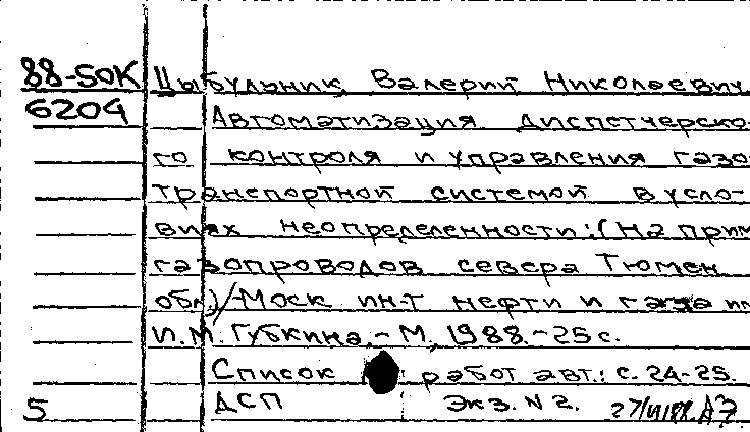 88-50К Цыбульник, Валерий Николаевич
6204 Автоматизация диспетчерско-
го контроля и управления газо-
транспортной системой в усло-
виях неопределенности: (На прим
газопроводов севера Тюмен
обл.) - Моск ин-т нефти и газа им
И.М. Губкина. - М, 1988. - 25 с.
Список работ авт.: с. 24-25.
5 ДСП Экз. N 2.